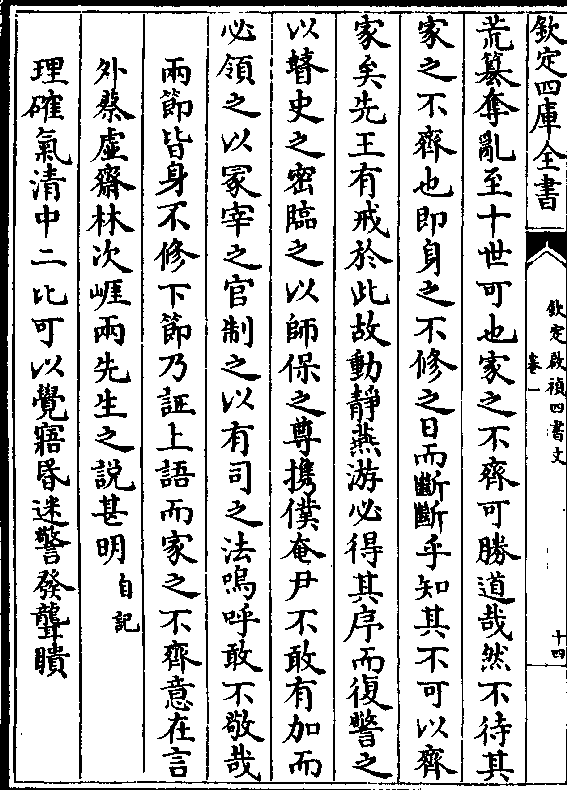 欽定四庫全書
欽定啟禎四書文
卷一
十四
荒篡奪亂至十世可也家之不齊可勝道哉然不待其
家之不齊也即身之不修之日而斷斷乎知其不可以齊
家矣先王有戒於此故動靜燕游必得其序而復警之
以瞽史之密臨之以師保之尊攜僕奄尹不敢有加而
必領之以冢宰之官制之以有司之法嗚呼敢不敬哉
兩節皆身不修下節乃証上語而家之不齊意在言
外蔡虛齋林次崖兩先生之説甚明自記
理確氣清中二比可以覺寤昏迷警發聾瞶